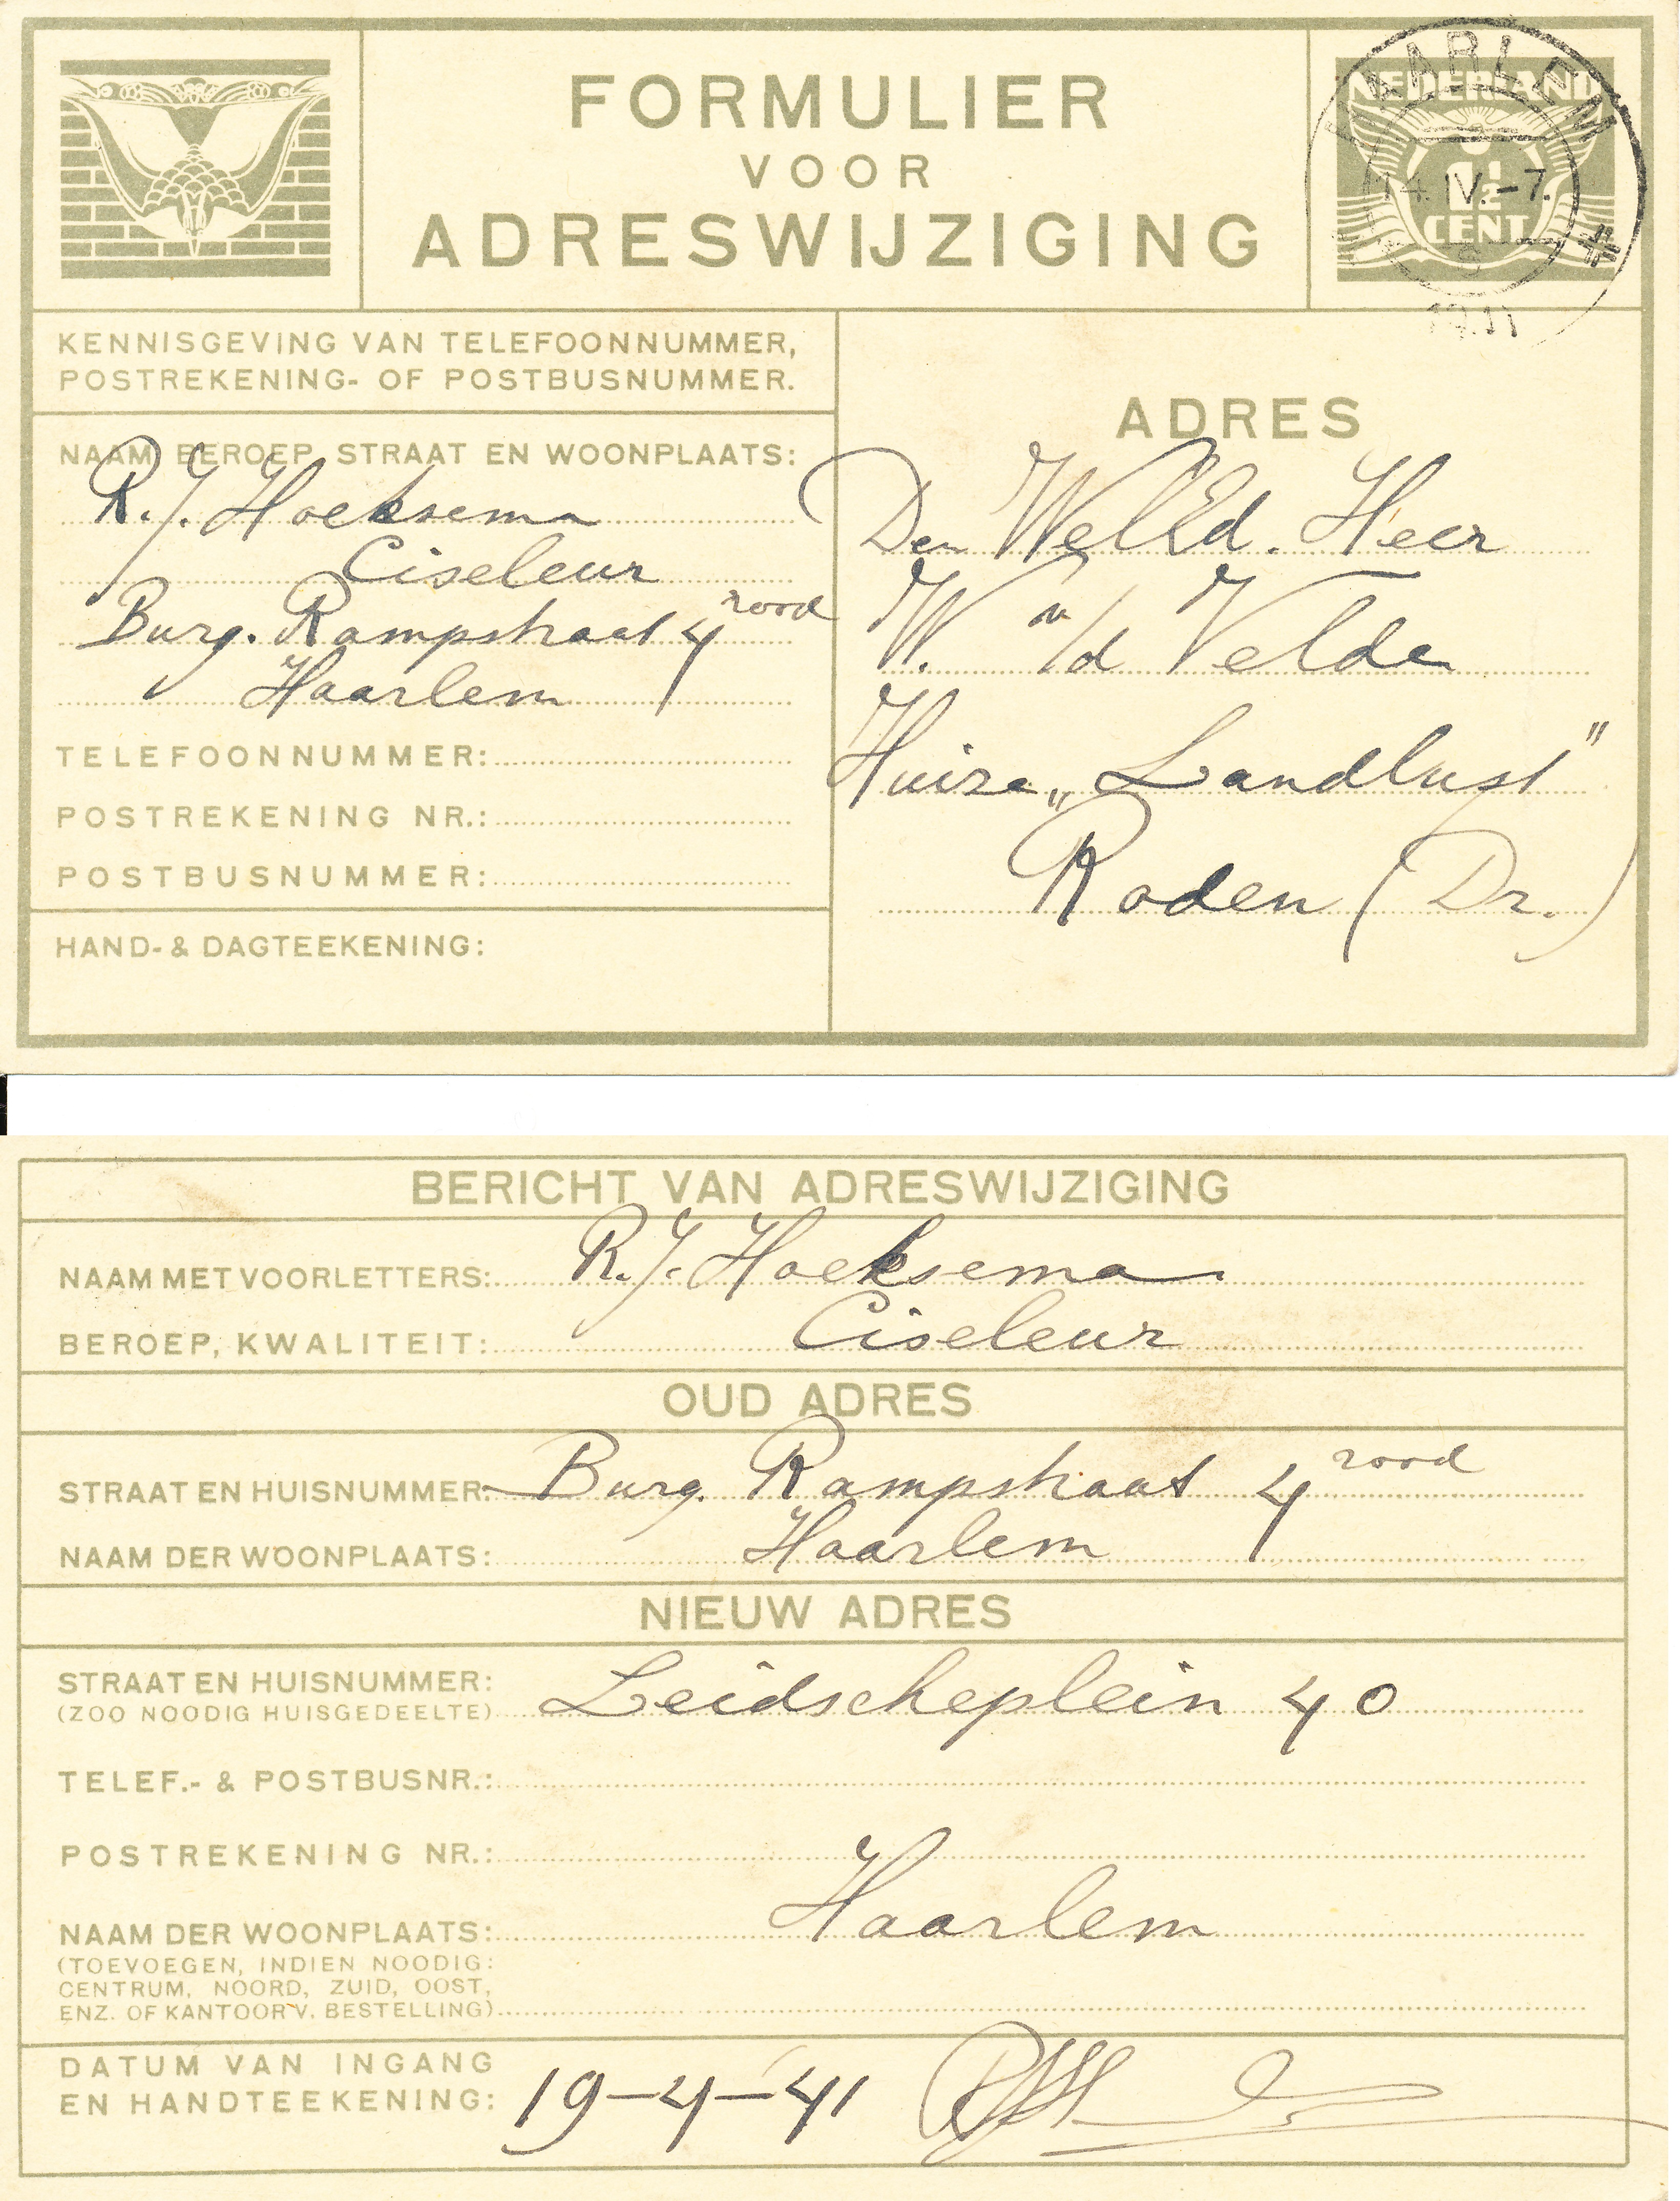 FORMULIER
VOOR
ADRESWIJZIGING
NEDERLAND
1½
CENT
HAARLEM
14.IV.-7.
KENNISGEVING VAN TELEFOONNUMMER,
POSTREKENING- OF POSTBUSNUMMER.
NAAM, BEROEP, STRAAT EN WOONPLAATS:
R.J. Hoeksema
Ciseleur
Burg. Rampstraat 4 rood
Haarlem
TELEFOONNUMMER:
POSTREKENING NR.:
POSTBUSNUMMER:
HAND- & DAGTEEKENING:
ADRES
Den WelEd. Heer
W. v/d Velde
Huize „Landlust"
Roden (Dr.)
BERICHT VAN ADRESWIJZIGING
NAAM MET VOORLETTERS: R.J. Hoeksema
BEROEP, KWALITEIT: Ciseleur
OUD ADRES
STRAAT EN HUISNUMMER: Burg. Rampstraat 4 rood
NAAM DER WOONPLAATS: Haarlem
NIEUW ADRES
STRAAT EN HUISNUMMER:
(ZOO NOODIG HUISGEDEELTE) Leidscheplein 40
TELEF.- & POSTBUSNR.:
POSTREKENING NR.:
NAAM DER WOONPLAATS: Haarlem
(TOEVOEGEN, INDIEN NOODIG:
CENTRUM, NOORD, ZUID, OOST,
ENZ. OF KANTOOR V. BESTELLING)
DATUM VAN INGANG
EN HANDTEEKENING: 19-4-41